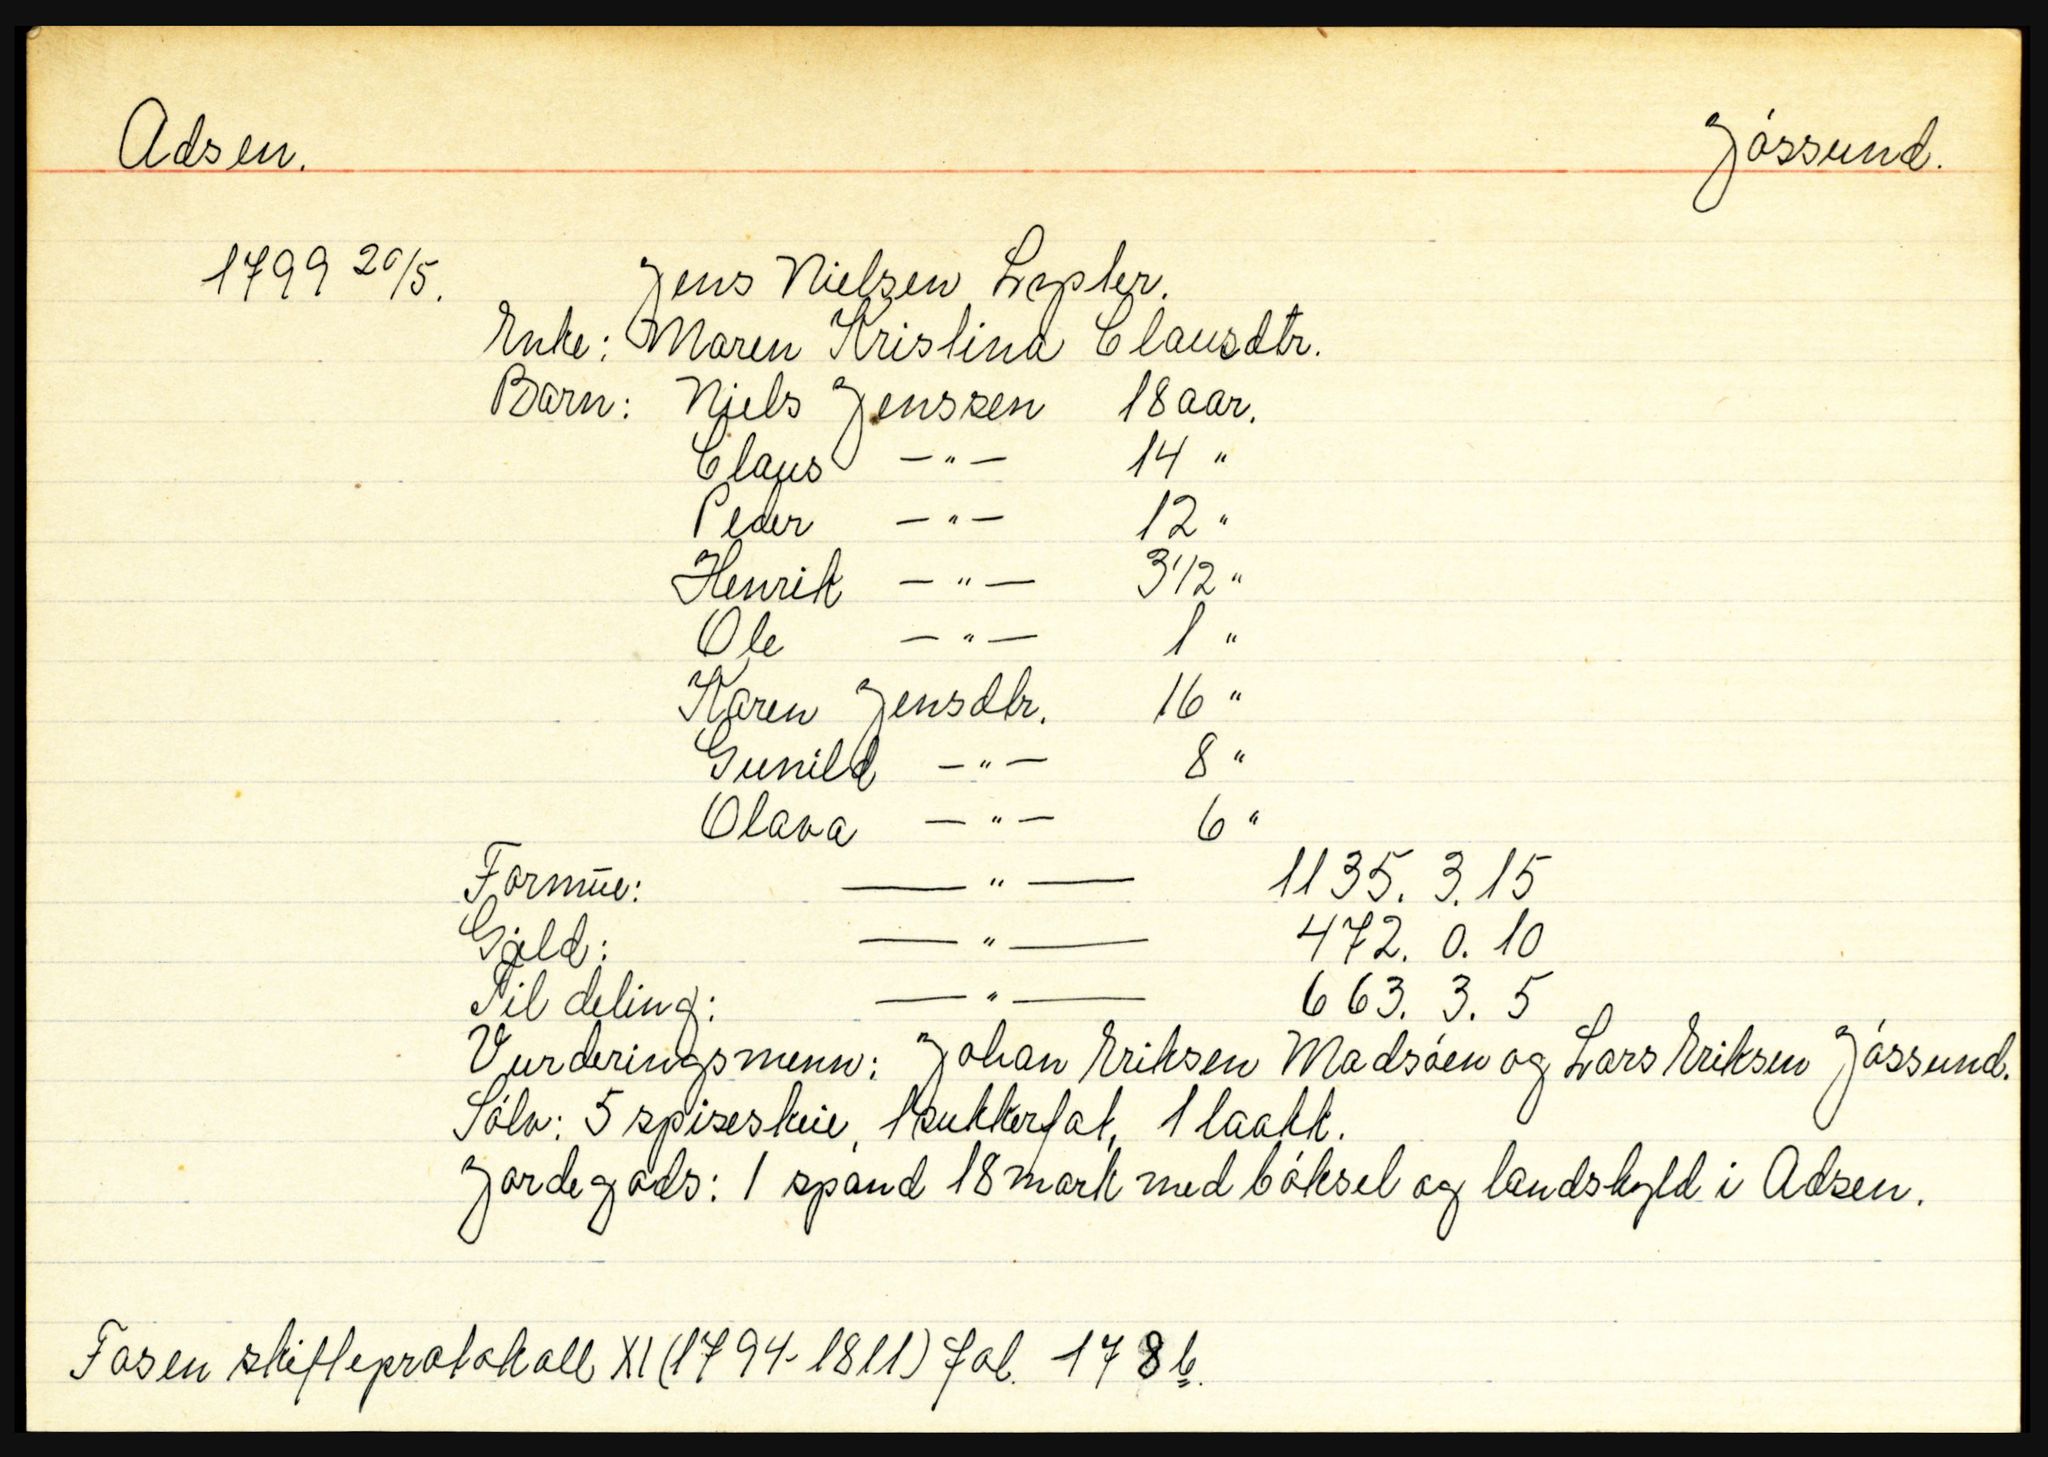 Adsen. Jóssund.
1799 20/5. Jens Nielsen Lypter.
Enke: Maren Kristina Clausdtr.
Barn: Niels Jenssen 18 aar.
Claus —"— 14 "
Peder —"— 12 "
Henrik —"— 3 1/2 "
Ole —"— 1 "
Karen Jensdtr. 16 "
Gunild —"— 8 "
Olava —"— 6 "
Formūe: —"— 1135. 3. 15
Gjeld: —"— 472. 0. 10
Til deling: —"— 663. 3. 5
Vurderingsmenn: Johan Eriksen Madsóen og Lars Eriksen Jóssund.
Sólv: 5 spiseskeie, 1 sukkerfat, 1 laakk.
Jordegods: 1 spand 18 mark med bóksel og landskyld i Adsen.
Fosen skifteprotokoll XI (1794-1811) fol. 178 b.